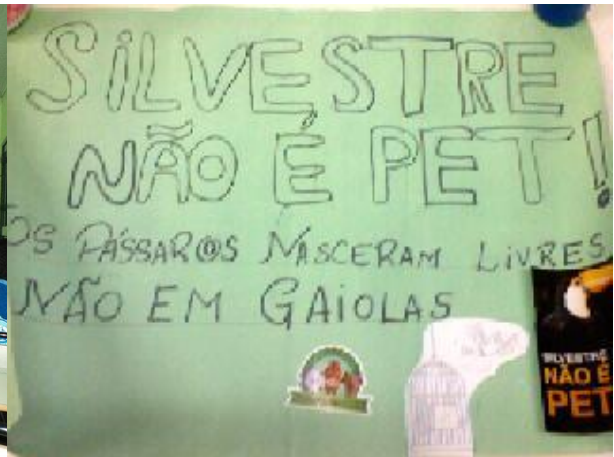 SILVESTRE
NÃO É PET!
OS PÁSSAR@S NASCERAM LIVRES
NÃO EM GAIOLAS
SILVESTRE
NÃO É
PET